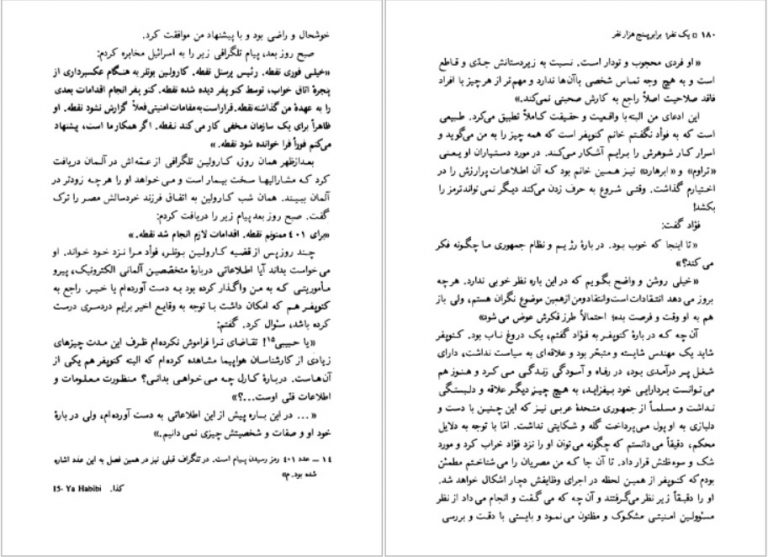 ۱۸۰ □ یک نفر؛ برابر پنج هزار نفر
«او فردی محجوب و تودار است. نسبت به زیردستانش جدّی و قاطع
است و به هیچ وجه تماس شخصی باآن‌ها ندارد و مهم‌تر از هرچیز با افراد
فاقد صلاحیت اصلاً راجع به کارش صحبتی نمی‌کند.»
این ادعای من البته با واقعیت و حقیقت کاملاً تطبیق می‌کرد. طبیعی
است که به فوآد نگفتم خانم کنوپفر است که همه چیز را به من می‌گوید و
اسرار کار شوهرش را برایم آشکار می‌کند. در مورد دستیاران او یعنی
«تراوم» و «ابرهارد» نیز همین خانم بود که آن اطلاعات پرارزش را در
اختیارم گذاشت. وقتی شروع به حرف زدن می‌کند دیگر نمی‌تواند ترمز را
بکشد!
فوآد گفت:
«تا اینجا که خوب بود. در بارهٔ رژیم و نظام جمهوری ما چگونه فکر
می‌کند؟»
«خیلی روشن و واضح بگویم که در این باره نظر خوبی ندارد. هرچه
بروز می‌دهد انتقادات است و انتقاد و من ازهمین موضوع نگران هستم، ولی باز
هم به او وقت و فرصت بده؛ احتمالاً طرز فکرش عوض می‌شود»
آن چه که در بارهٔ کنوپفر به فوآد گفتم، یک دروغ ناب بود. کنوپفر
شاید یک مهندس شایسته و متبحّر بود و علاقه‌ای به سیاست نداشت، دارای
شغل پر درآمدی بود، در رفاه و آسودگی زندگی می‌کرد و هنوز هم
می‌توانست بردارایی خود بیفزاید، به هیچ چیز دیگر علاقه و دلبستگی
نداشت و مسلماً از جمهوری متحدهٔ عربی نیز که این چنین با دست و
دلبازی به او پول می‌پرداخت گله و شکایتی نداشت. امّا با توجه به دلایل
محکم، دقیقاً می‌دانستم که چگونه می‌توان او را نزد فوآد خراب کرد و مورد
شک و سوءظنش قرار داد. تا آن جا که من مصریان را می‌شناختم مطمئن
بودم که کنوپفر از همین لحظه در اجرای وظایفش دچار اشکال خواهد شد.
او را دقیقاً زیر نظر می‌گرفتند و آن چه که می‌گفت و انجام می‌داد از نظر
مسؤولین امنیتی مشکوک و مظنون می‌نمود و بایستی با دقت و بررسی
خوشحال و راضی بود و با پیشنهاد من موافقت کرد.
صبح روز بعد، پیام تلگرافی زیر را به اسرائیل مخابره کردم:
«خیلی فوری نقطه. رئیس پرسنل نقطه. کارولین بونلر به هنگام عکسبرداری از
پنجرهٔ اتاق خواب، توسط کنوپفر دیده شده نقطه. کنوپفر انجام اقدامات بعدی
را به عهدهٔ من گذاشته نقطه. قراراست به مقامات امنیتی فعلاً گزارش نشود نقطه. او
ظاهراً برای یک سازمان مخفی کار می‌کند نقطه. اگر همکار ما است، پیشنهاد
می‌کنم فوراً فرا خوانده شود نقطه.»
بعدازظهر همان روز، کارولین تلگرافی از عمّه‌اش در آلمان دریافت
کرد که مشارالیها سخت بیمار است و می‌خواهد او را هرچه زودتر در
آلمان ببیند. همان شب کارولین به اتفاق فرزند خردسالش مصر را ترک
گفت. صبح روز بعد پیام زیر را دریافت کردم:
«برای ۴۰۱ ممنونم نقطه. اقدامات لازم انجام شد نقطه.»
چند روز پس از قضیه کارولین بونلر، فوآد مرا نزد خود خواند. او
می‌خواست بداند آیا اطلاعاتی دربارهٔ متخصصین آلمانی الکترونیک، پیرو
مأموریتی که به من واگذار کرده بود به دست آورده‌ام یا خیر. راجع به
کنوپفر هم که امکان داشت با توجه به وقایع اخیر برایم دردسری درست
کرده باشد، سئوال کرد. گفتم:
«یا حبیبی۱۵! تقاضای ترا فراموش نکرده‌ام ظرف این مدت چیزهای
زیادی از کارشناسان هواپیما مشاهده کرده‌ام که البته کنوپفر هم یکی از
آن‌هاست. دربارهٔ کارل چه می‌خواهی بدانی؟ منظورت معلومات و
اطلاعات فنّی اوست...؟»
«... در این باره پیش از این اطلاعاتی به دست آورده‌ام، ولی در بارهٔ
خود او و صفات و شخصیتش چیزی نمی‌دانیم.»
۱۴ — عدد ۴۰۱ رمز رسیدن پیام است. در تلگراف قبلی نیز در همین فصل به این عدد اشاره
شده بود. م»
15- Ya Habibi کذا.